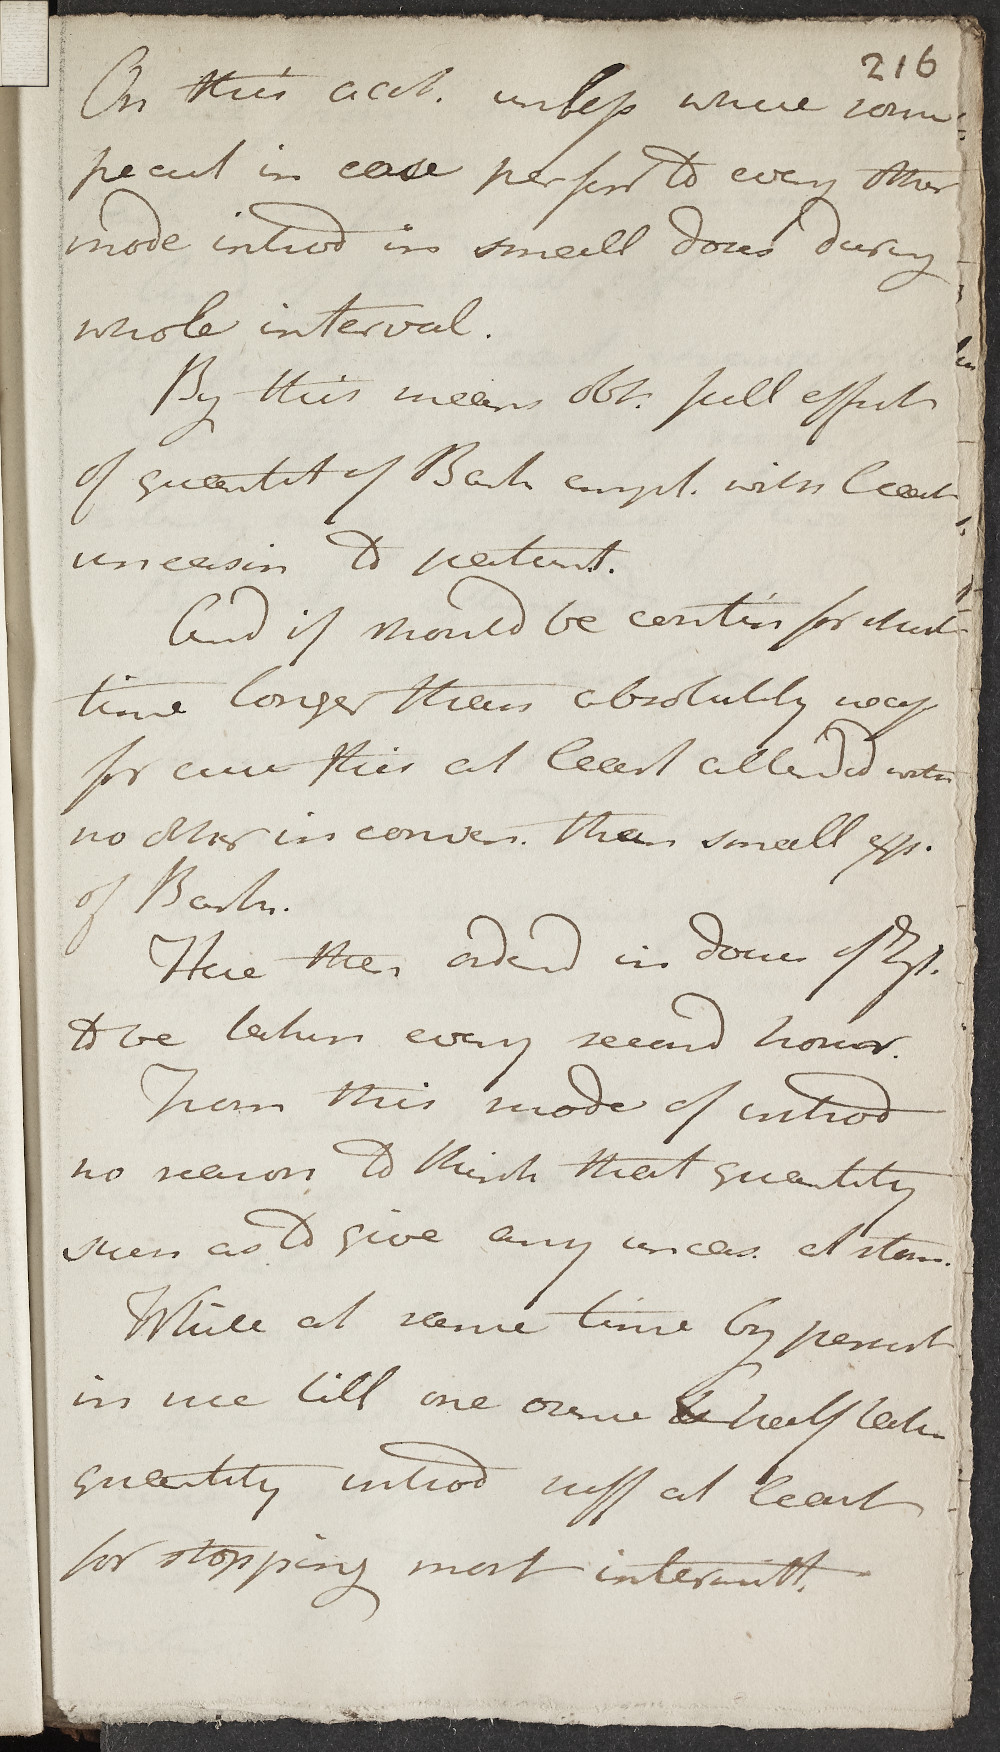 216
On this acct. unless where some
pecul in case prefer to every other
mode introd in small doses during
whole interval.
By this means obt. full effect
of quantit of Bark empl. with least
uneasin to patient.
And if should be contin for short
time longer than absolutely necy
for cure this at least attended with
no other inconven. than small exp.
of Bark.
Here then ordered in doses of
to be taken every second hour.
From this mode of introd
no reason to think that quantity
such as to give any uneas. at stom.
While at same time by persist
in use till one ounce & half taken
quantity introd suff at least
for stopping most intermitt.